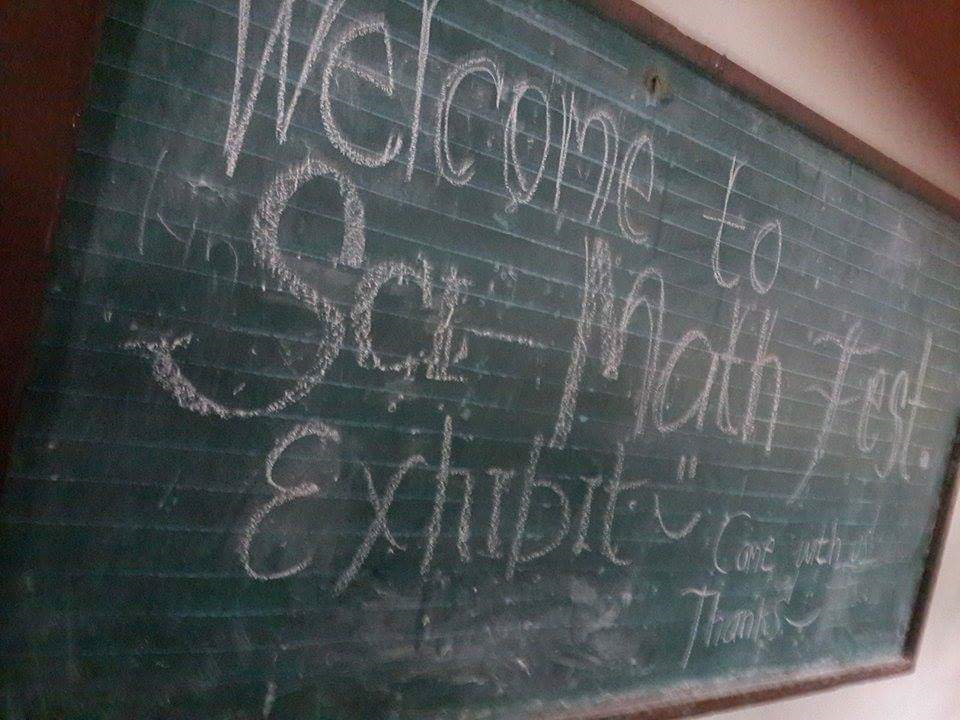 Welcome to
Sci-Math Fest!
Exhibit
Come with us
Thanks